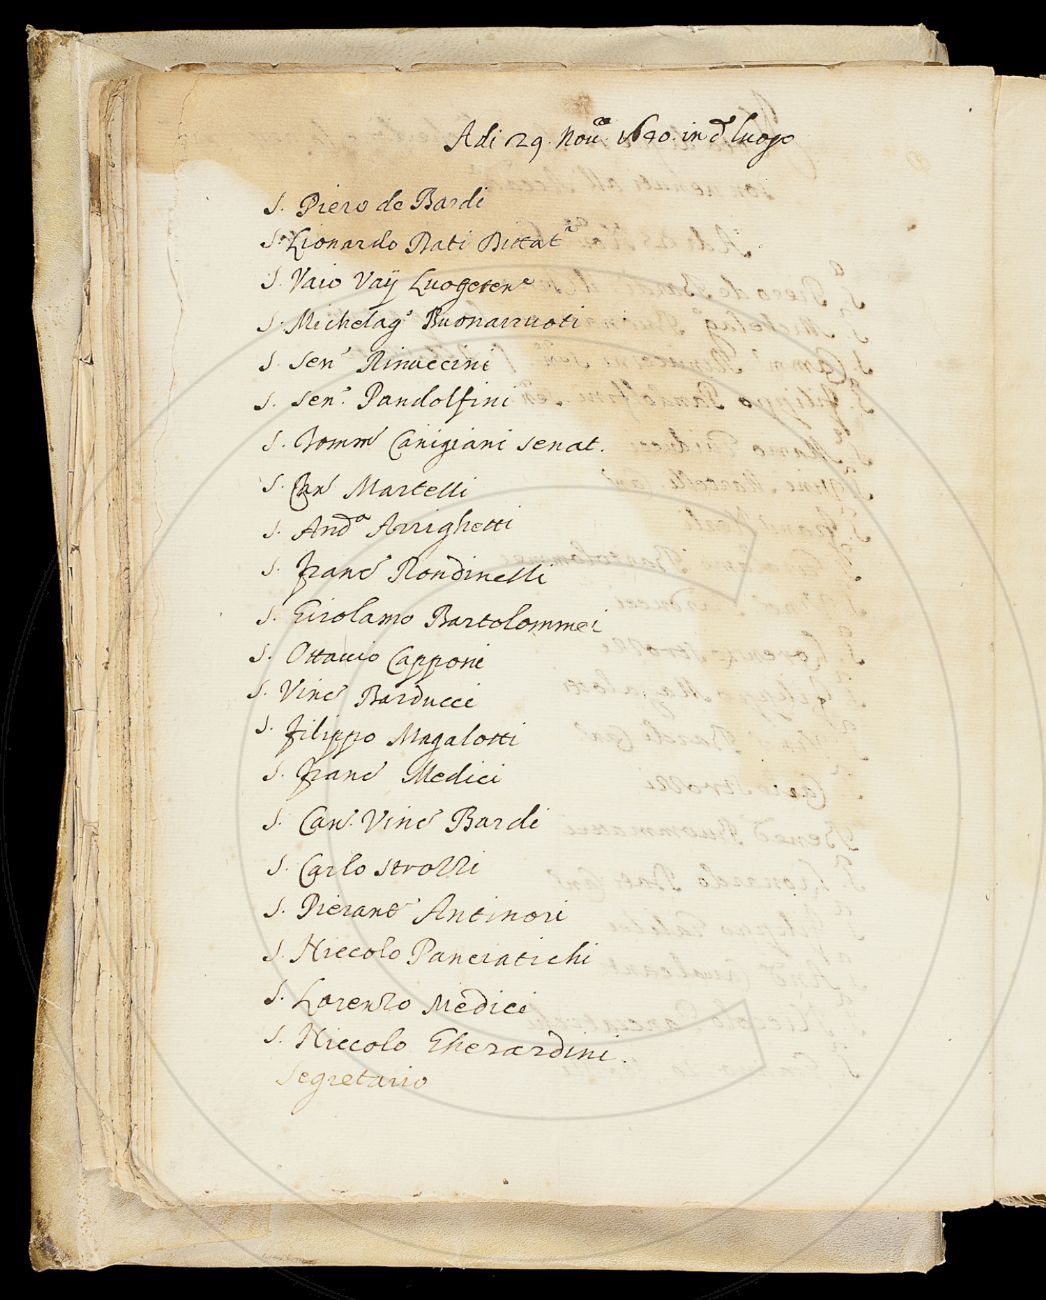 Adi 29. Nov.e 1640. in d.o luogo
S. Piero de Bardi
S. Lionardo Dati Dittat.re
S. Vaio Vaÿ Luogoten.e
S. Michelag.o Buonarruoti
S. Sen.r Rinuccini
S. Sen.r Pandolfini
S. Tomm.o Canigiani Senat.
S. Can.co Martelli
S. And.a Arrighetti
S. Franc.o Rondinelli
S. Girolamo Bartolommei
S. Ottavio Capponi
S. Vinc.o Barducci
S. Filippo Magalotti
S. Franc.o Medici
S. Can.co Vinc.o Bardi
S. Carlo Strozzi
S. Pierant.o Antinori
S. Niccolo Panciatichi
S. Lorenzo Medici
S. Niccolo Gherardini.
Segretario